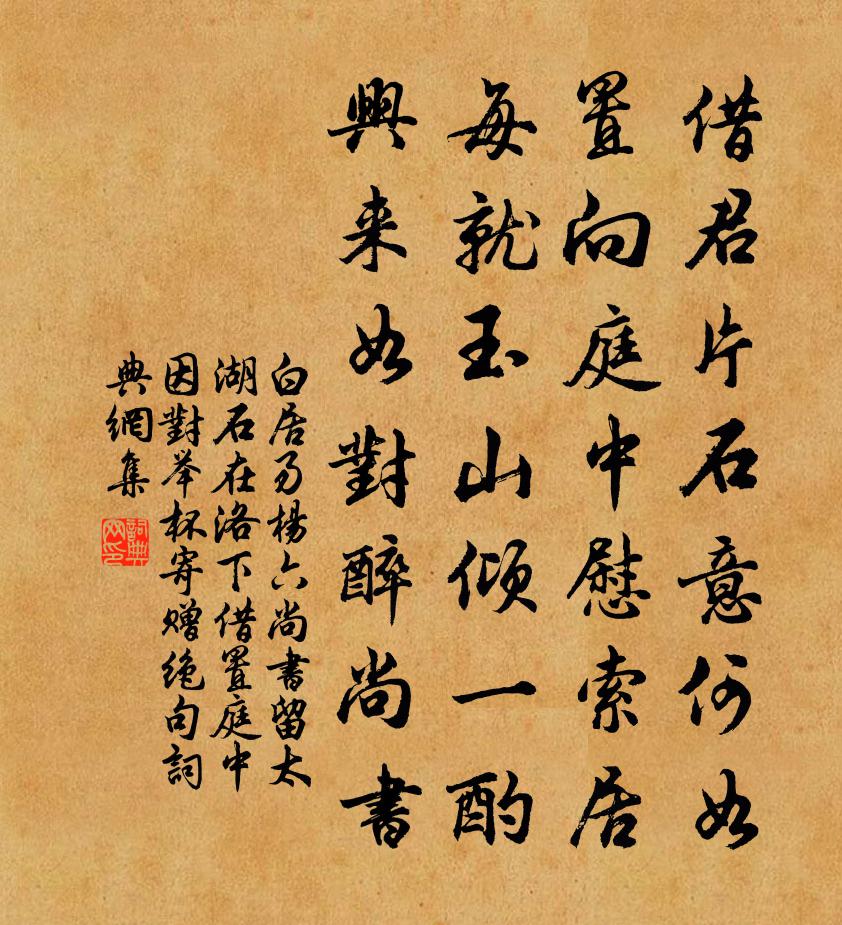 借君片石意何如
置向庭中慰索居
每就玉山傾一酌
興来如對醉尚書
白居易楊六尚書留太
湖石在洛下借置庭中
因對举杯寄贈绝句詞
典網集
詞典
网印